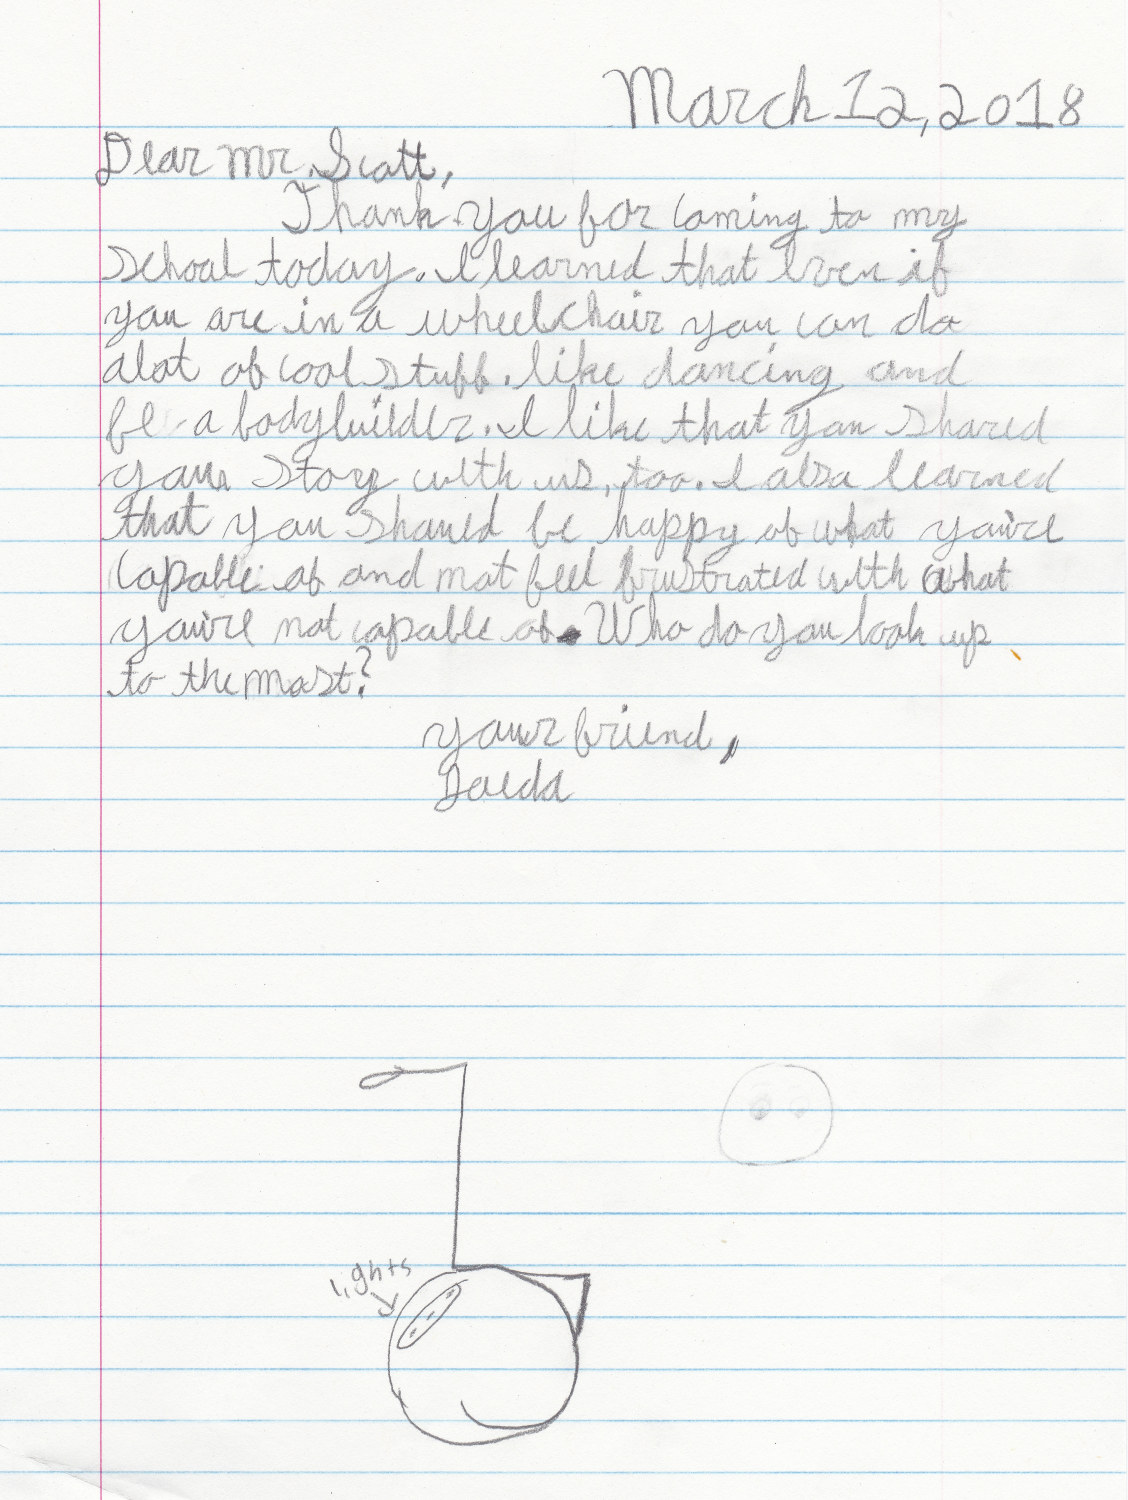 March 12, 2018
Dear Mr. Scott,
Thank you for coming to my
school today. I learned that even if
you are in a wheelchair you can do
alot of cool stuff. like dancing and
be a bodybuilder. I like that you shared
your story with us, too. I also learned
that you should be happy of what you're
capable of and not feel frustrated with what
you're not capable of. Who do you look up
to the most?
your friend,
lights